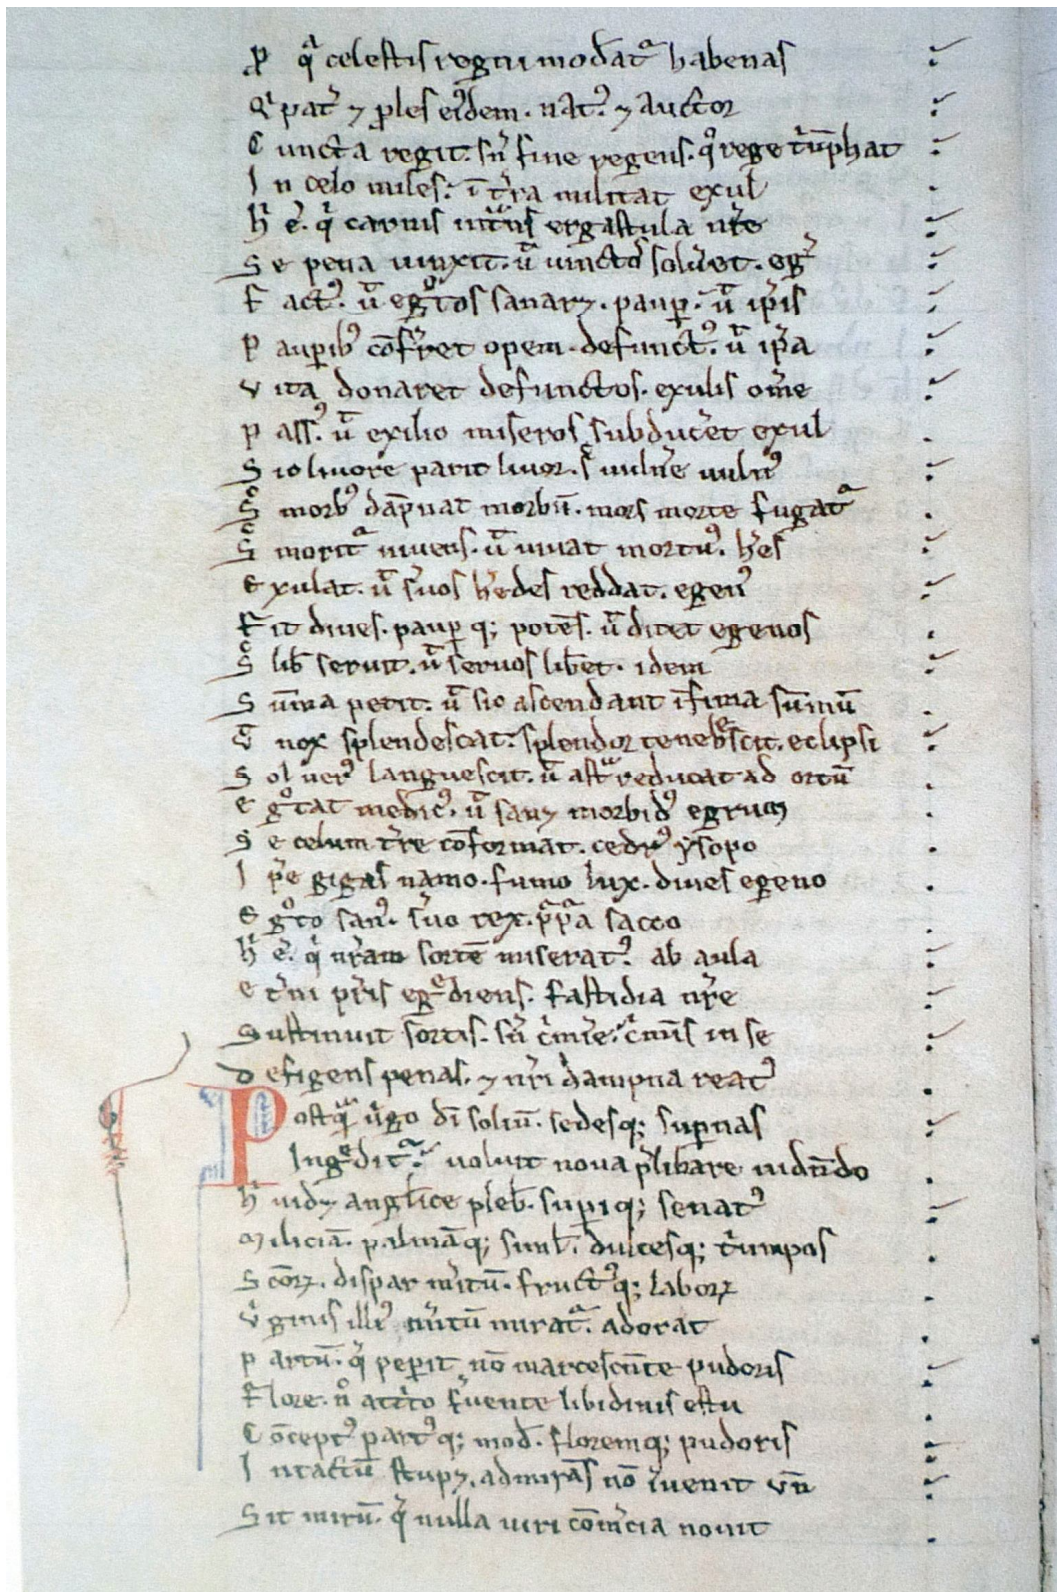 ꝑ qͣ celestis regni modatͣ habenas
Qͥ pat᷑ ⁊ ꝓles eiꝰdem. natꝰ. ⁊ auctor
Cuncta regit. sn̄ fine regens. qͦ rege tͥu̅phat
In celo miles. i̅ tr̄ra militat exul
hͥ ē. qͥ carnis intͣns ergastula nr̄e
Se pena uinxit. ut̄ uinctos solu᷑et. eg᷑
Factꝰ. ut̄ egͦtos sanarꝫ. paup̲. ut̄ ip̄is
Paup̲ibꝰ co̅fr᷑et opem. defunctꝰ. ut̄ ip̄a
Vita donaret defunctos. exulis ome̅
Passꝰ. ut̄ exilio miseros subduc᷑et exul
Sic liuore parit liuor. sͨ uuln᷑e uulnꝰ
Sͨ morbꝰ da̅pnat morbu̅. mors morte fugatͣ
Sͨ moritͣ uiuens. ut̄ uiuat mortuꝰ. h᷑es
Exulat. ut̄ s᷑uos h᷑edes reddat. egenꝰ
Fit diues. paup̲ qꝫ potēs. ut̄ ditet egenos
Sͨ lib̄ seruit. ut̄ seruos lib̄et. idem
Su̅ma petit. ut̄ sic ascendant i̅fima su̅mu̅
Vt̄ nox splendescat. splendor tenebͤscit. eclipsi
Sol uerꝰ languescit. ut̄ astͣ reducat ad ortu̅
Egͦtat medicꝰ. ut̄ sanꝫ morbidꝰ egrum
Se celum tr᷑re co̅format. cedrꝰ ysopo
Ip̄e gigas nano. fumo lux. diues egeno
Egͦto sanꝰ. s᷑uo rex. pͬpͬa sacco
hͥ ē. qͥ nr̄am sorte̅ miseratꝰ. ab aula
et᷑ni pr̄is egͤdiens. fastidia nr̄e
Sustinuit sortis. sn̄ cͥmīe. cͥmīs in se
Defigens penas. ⁊ nr̄i dampna reatꝰ
Postqͣ uͥgo di̅ soliu̅. sedesqꝫ suꝑnas
Ingͤditͣ. uoluit noua p̄libare uide̅do
hͥ uidꝫ anglice pleb̄. suꝑiqꝫ senatꝰ
Milicia̅. palma̅qꝫ simł. dulcesqꝫ tͥumpos
Sco̅ꝝ. dispar m᷑itu̅. fructꝰqꝫ laboꝝ
Vͥginis illiꝰ m᷑itu̅ miratͣ. adorat
Partu̅. qͥ peꝑit no̅ marcescn̅te pudoris
Flore. nͦ attͥto f᷑uente libidinis estu
Co̅ceptꝰ partꝰqꝫ mod̄. floremqꝫ pudoris
Intactu̅ stupꝫ. admira̅s no̅ i̅uenit vn̄
Sit miru̅. qͥ nulla uiri com᷑cia nouit